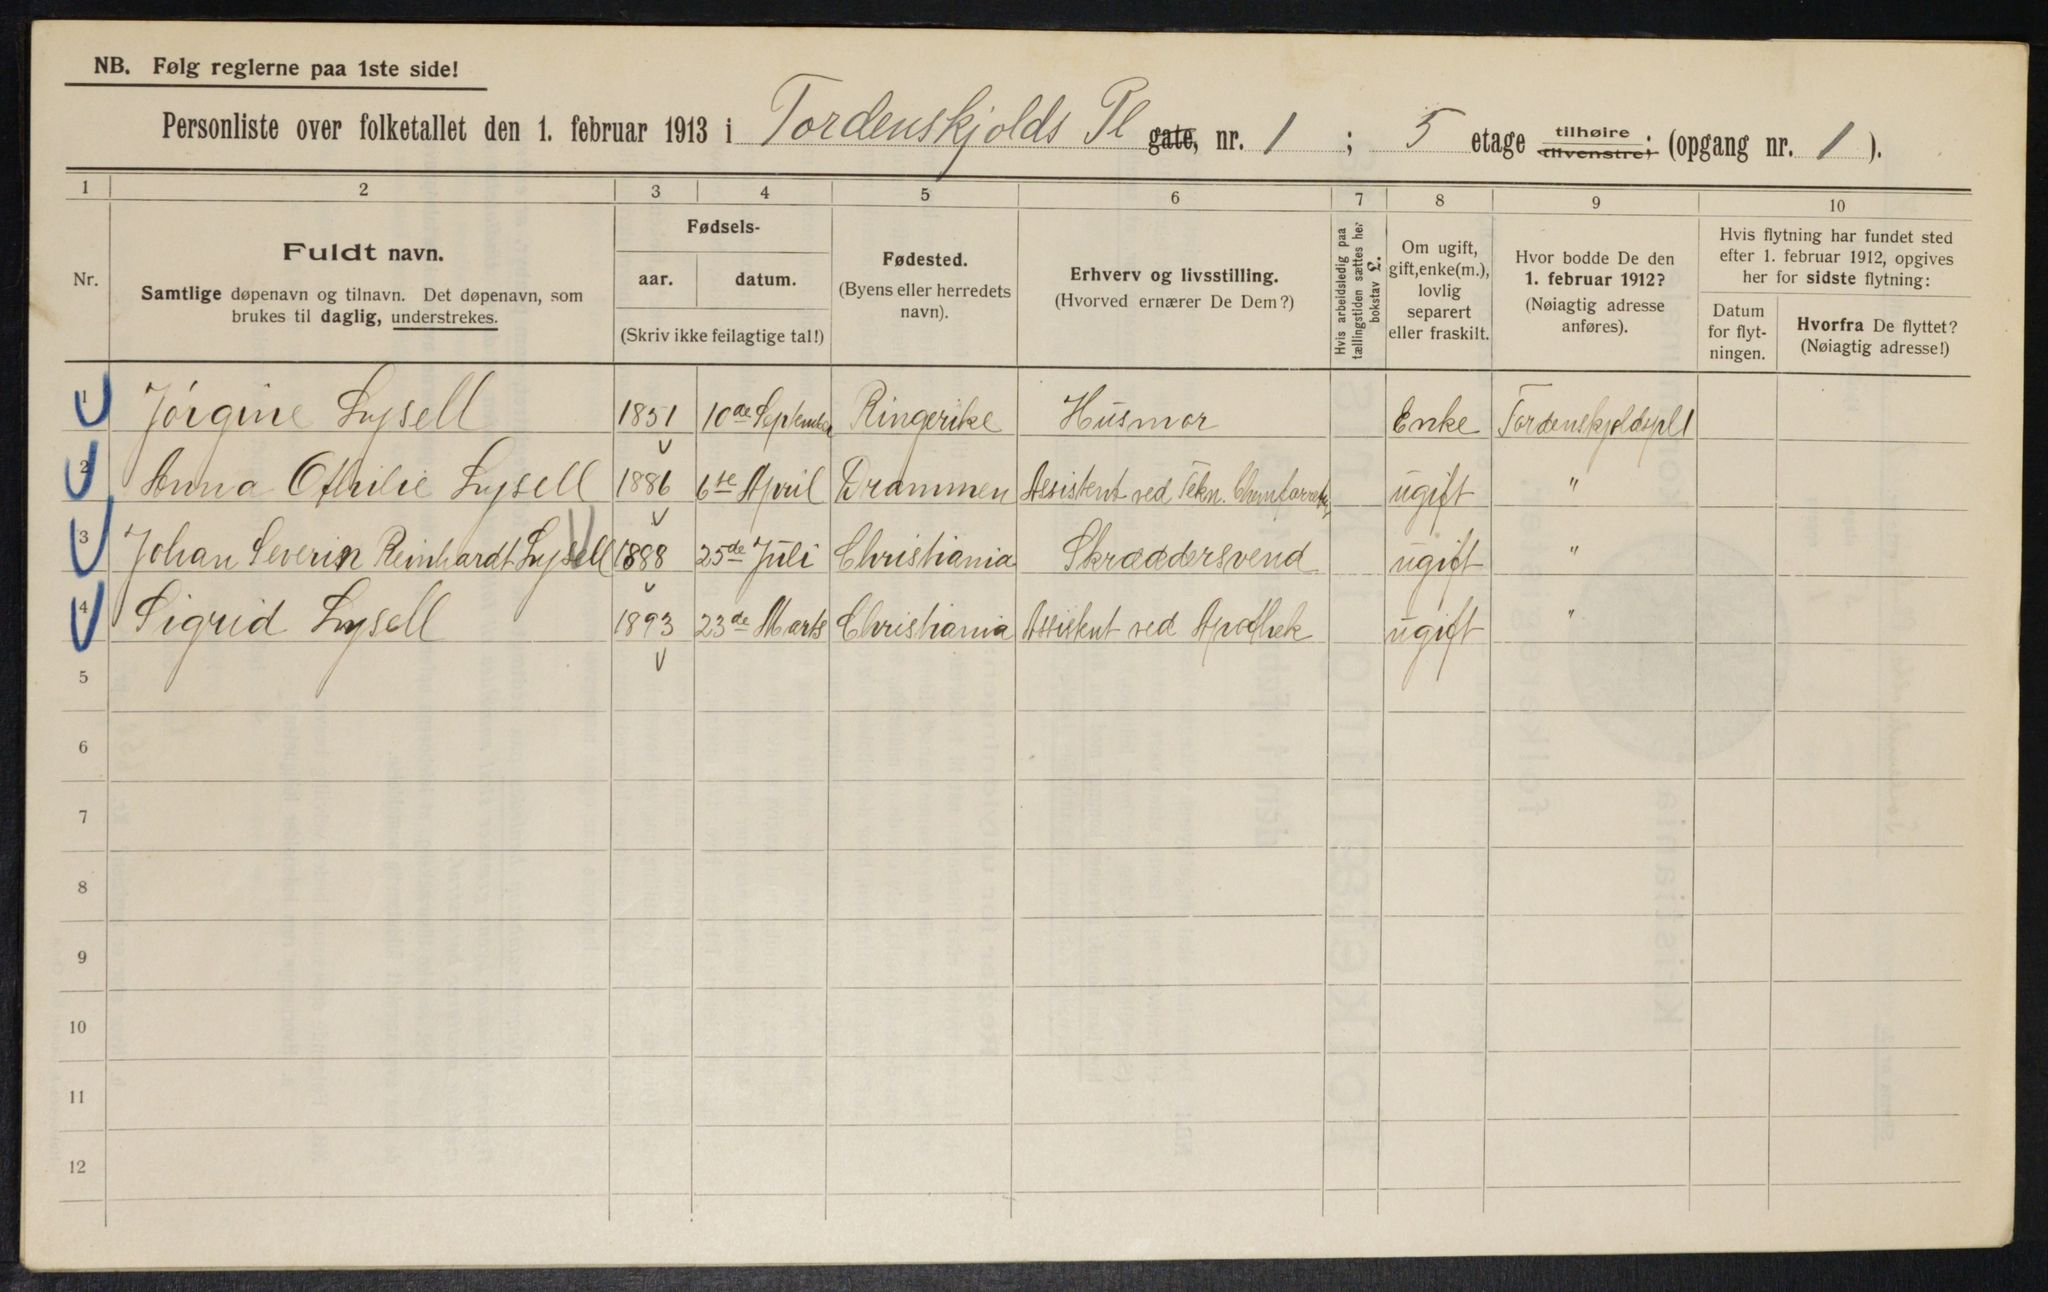 NB. Følg reglerne paa 1ste side!
Personliste over folketallet den 1. februar 1913 i Tordenskjolds Pl gate, nr. 1 ; 5 etage tilhøire tilvenstre; (opgang nr. 1 ).
1 2 3 4 5 6 7 8 9 10
Nr.
Fuldt navn.
Samtlige døpenavn og tilnavn. Det døpenavn, som
brukes til daglig, understrekes.
Fødsels-
aar. datum.
(Skriv ikke feilagtige tal!)
Fødested.
(Byens eller herredets
navn).
Erhverv og livsstilling.
(Hvorved ernærer De Dem?)
Hvis arbeidsledig paa
tællingstiden sættes her
bokstav L.
Om ugift,
gift, enke(m.),
lovlig
separert
eller fraskilt.
Hvor bodde De den
1. februar 1912?
(Nøiagtig adresse
anføres).
Hvis flytning har fundet sted
efter 1. februar 1912, opgives
her for sidste flytning:
Datum
for flyt-
ningen.
Hvorfra De flyttet?
(Nøiagtig adresse!)
1 Jörgine Lysell 1851 10de September Ringerike Husmor Enke Tordenskjoldspl 1
2 Anna Othilie Lysell 1886 6te April Drammen Assistent ved Tekn. ugift "
3 Johan Severin Reinhardt Lysell 1888 25de Juli Christiania Skræddersvend ugift "
4 Sigrid Lysell 1893 23de Marts Christiania Assistent ved Apothek ugift "
5
6
7
8
9
10
11
12